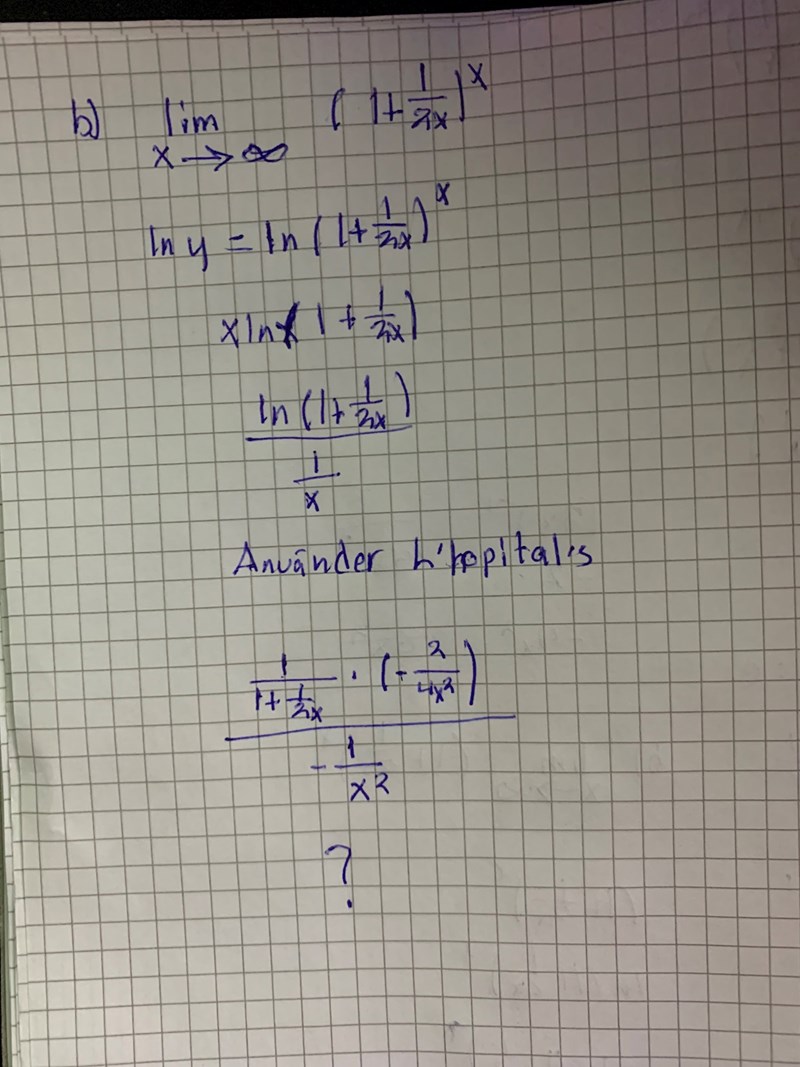 b) lim (1+1/2x)^x
x→∞
ln y = ln(1+1/2x)^x
x ln(1+1/2x)
ln(1+1/2x)
1/x
Använder L'hopital's
1/(1+1/2x) · (-2/4x²)
-1/x²
?